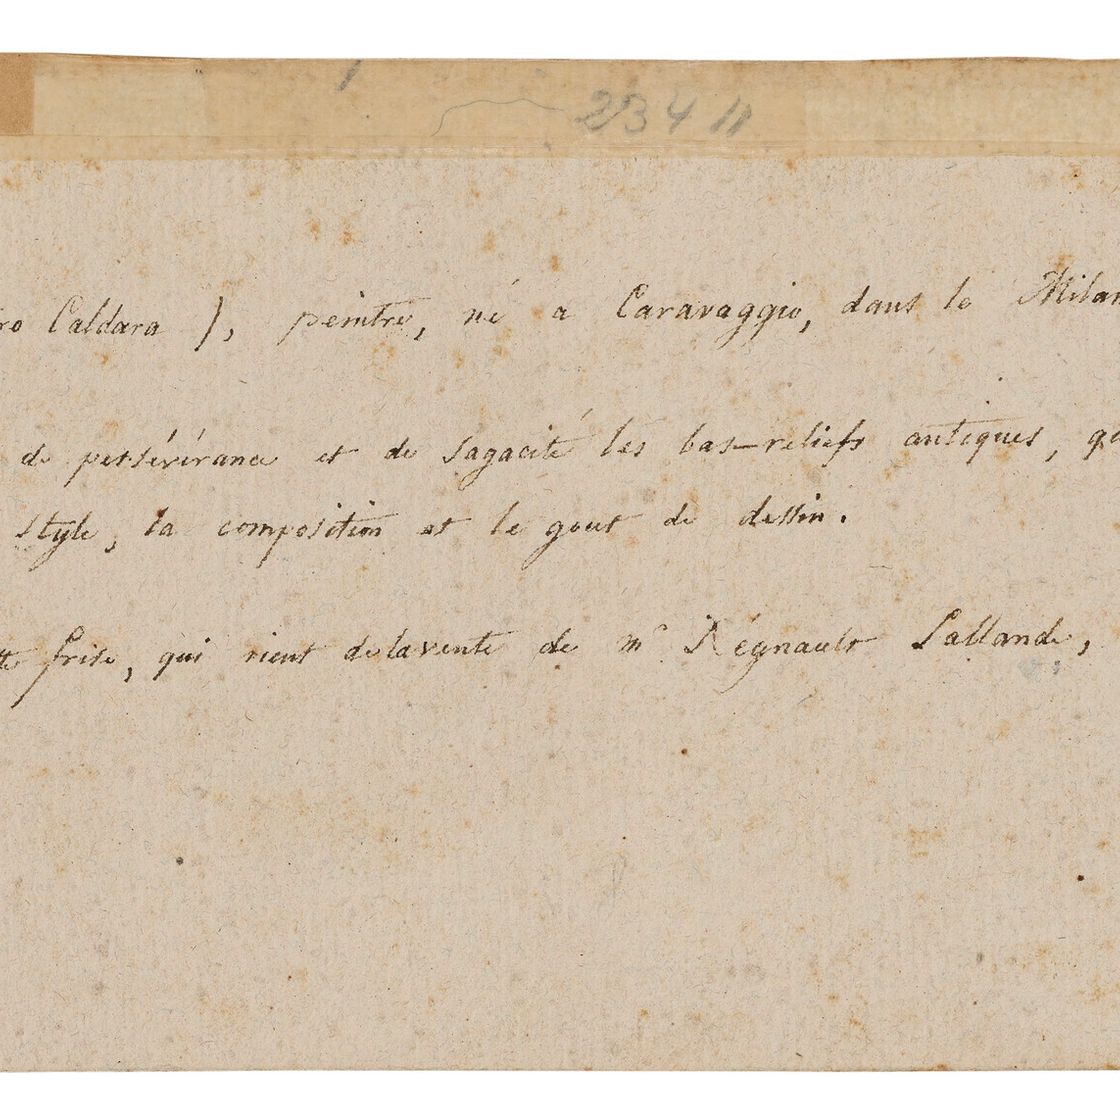 234 11
ro Caldara ), peintre, né a Caravaggio, dans le Milan
de persévérance et de sagacité les bas-reliefs antiques, q
style, la composition et le gout de dessin.
tte frise, qui vient de la vente de mr Régnault Lallande,